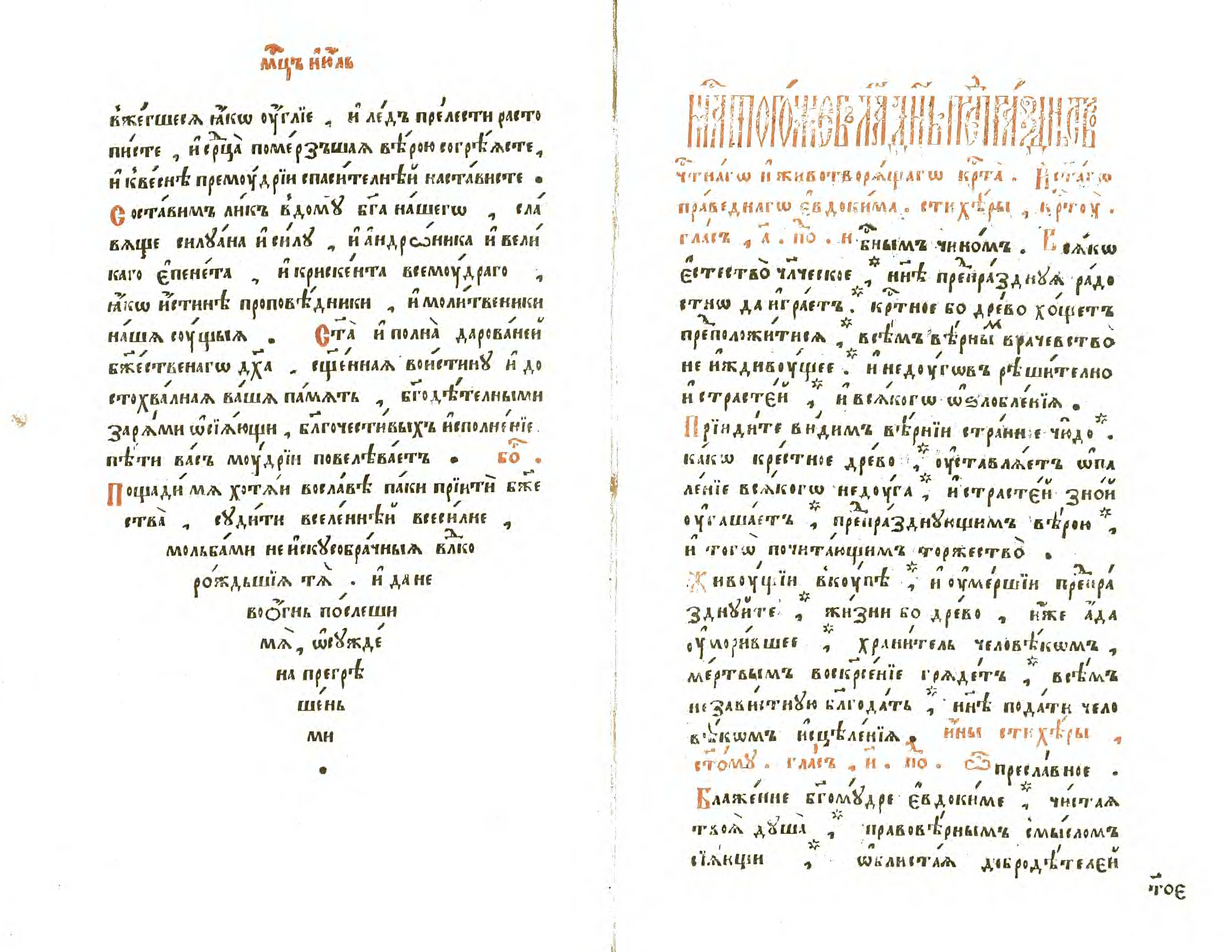 мⷭ҇цъ і҆ю́ль
вже́гшеся ꙗ҆́кѡ ѹ҆́глїе , и҆ ле́дъ пре́лести расто
писте , и҆ срⷣца поме́рзъшая вѣ́рою согрѣ́ясте,
и҆ к ве́снѣ премѹ́дрїи спаси́телнѣй наста́висте .
Соста́вимъ ли́къ в дому̀ бг҃а на́шегѡ , сла
вяще силуа́на и҆ си́лу , и҆ а҆ндро́ника и҆ вели
каго є҆пене́та , и҆ криске́нта всемѹ́драго ,
ꙗ҆́кѡ и҆́стинѣ проповѣ́дники , и҆ моли́твеники
на́шя сѹ́щыя . Ст҃а̀ и҆ полна̀ дарова́ней
бж҃е́ственагѡ дх҃а , сщ҃е́нная вои́стину и҆ до
стохва́лная ва́шя па́мять , бг҃одѣ́телными
заря́ми ѡ҆сїя́ющи , блг҃очести́выхъ и҆сполне́нїе
пѣ́ти ва́съ мѹ́дрїи повелѣва́етъ . бо҃ .
Пощади́ мя хотя́и во сла́вѣ па́ки прїитѝ бж҃е
ства̀ , суди́ти вселе́ннѣй всеси́лне ,
мольба́ми неи҆скусобра́чныя влⷣко
ро́ждьшїя тя̀ . и҆ да не
во ѻ҆́гнь по́слеши
мя̀, ѡ҆сужде́
на прегрѣ
ше́нь
ми
.
чⷭ҇тна́гѡ и҆ животворя́щагѡ крⷭ҇та̀ . И҆ ст҃а́гѡ
пра́веднагѡ є҆вдоки́ма . стихѣ́ры , крⷭ҇тѹ̀ .
гла́съ , а҃ . по . нбⷭ҇нымъ чино́мъ . Всякѡ
є҆стество̀ чл҃ческое , нн҃ѣ препра́зднуя ра́до
стїю да и҆гра́етъ , крⷭ҇тное бо дре́во хо́щетъ
преⷣположи́тися , всѣ́мъ вѣ́рныⷨ врачевство̀
не и҆ждивѹ́щее . и҆ недѹ́говъ рѣши́телно
и҆ страсте́й , и҆ вся́когѡ ѡ҆ѕлобле́нїя .
Прїиди́те ви́димъ вѣ́рнїи стра́нное чю́до .
ка́кѡ кре́стное дре́во , ѹ҆ставля́етъ ѡ҆па
ле́нїе вся́когѡ недѹ́га , и҆ страсте́й зно́й
ѹ҆гаша́етъ , преⷣпра́зднующимъ вѣ́рою ,
и҆ того̀ почита́ющимъ торжество̀ .
Живѹ́щїи вкѹ́пѣ , и҆ ѹ҆ме́ршїи преⷣпра́
зднуйте , жи́зни бо дре́во , и҆́же а҆́да
ѹ҆мори́вшее , храни́тель человѣ́кѡмъ ,
ме́ртвымъ воскрⷭ҇е́нїе гряде́тъ , всѣ́мъ
незави́стную блг҃ода́ть , нн҃ѣ пода́ти чело
вѣ́кѡмъ и҆сцѣле́нїя . и҆́ны стихѣ́ры ,
ст҃о́му . гла́съ , и҃ . по . Ѽ пресла́вное .
Блаже́нне бг҃ому́дре є҆вдоки́ме , чи́стая
твоя̀ душа̀ , правовѣ́рнымъ смы́сломъ
сїя́ющи , ѡ҆блиста́я добродѣ́телей
тое